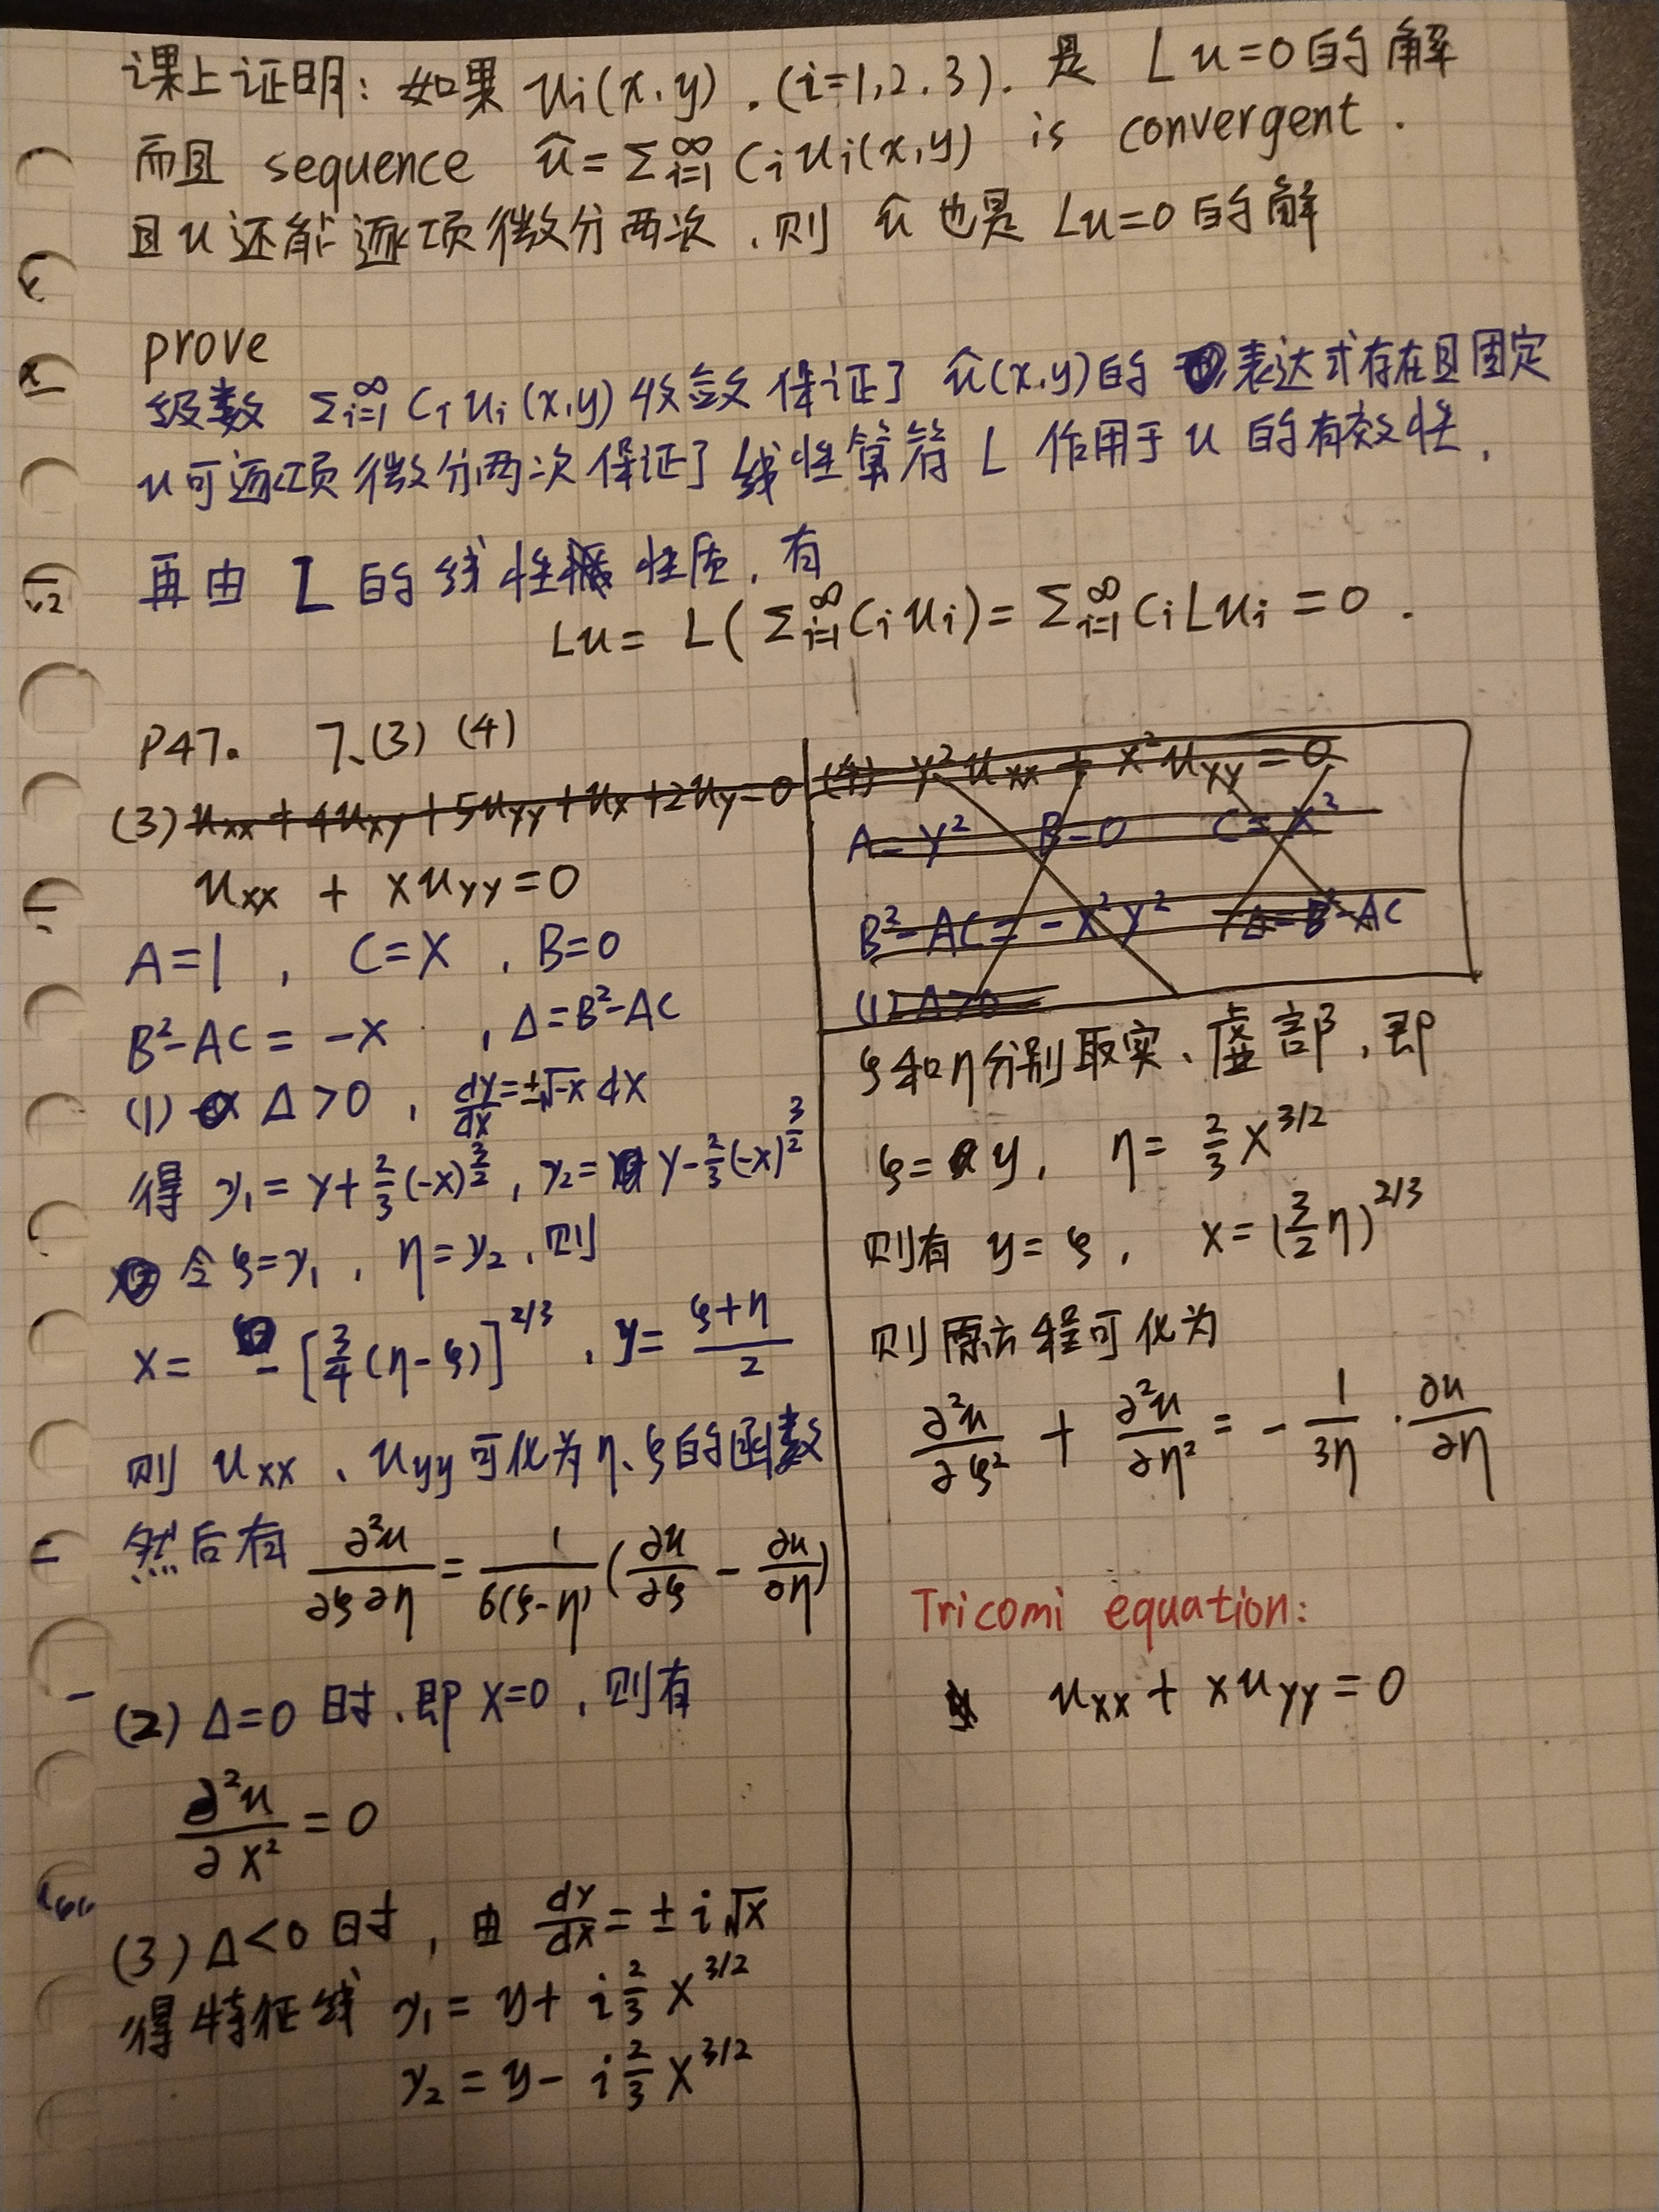 课上证明: 如果 u_i(x,y). (i=1,2.3). 是 Lu=0的解
而且 sequence û=Σ_{i=1}^∞ C_i u_i(x,y) is convergent.
且u还能逐项微分两次,则 û 也是 Lu=0的解
prove
级数 Σ_{i=1}^∞ C_i u_i(x,y) 收敛保证了 û(x,y)的表达式存在且固定
u可逐项微分两次保证了线性算符 L 作用于 u 的有效性.
再由 L 的线性性质,有
Lu= L(Σ_{i=1}^∞ C_i u_i)= Σ_{i=1}^∞ C_i Lu_i =0.
P47. 7.(3) (4)
(3) u_xx+4u_xy+5u_yy+u_x+2u_y=0
u_xx + xu_yy=0
A=1 , C=X , B=0
B²-AC = -x , Δ=B²-AC
(1) Δ>0 , dy/dx=±√-x dx
得 y₁= y+2/3(-x)^{3/2}, y₂= y-2/3(-x)^{3/2}
令 ξ=y₁, η=y₂,则
x= -[3/4(η-ξ)]^{2/3}, y= (ξ+η)/2
则 u_xx、u_yy可化为η、ξ的函数
然后有 ∂²u/∂ξ∂η = 1/6(ξ-η) (∂u/∂ξ - ∂u/∂η)
(2) Δ=0 时,即 x=0,则有
∂²u/∂x² = 0
(3) Δ<0 时,由 dy/dx = ± i√x
得特征线 y₁ = y+ i 2/3 x^{3/2}
y₂ = y- i 2/3 x^{3/2}
(4) y²u_xx + x²u_yy = 0
A=y² B=0 C=x²
B²-AC=-x²y² Δ=B²-AC
(1) Δ>0
ξ和η分别取实、虚部,即
ξ= y, η= 2/3 x^{3/2}
则有 y= ξ, x=(3/2 η)^{2/3}
则原方程可化为
∂²u/∂ξ² + ∂²u/∂η² = - 1/3η · ∂u/∂η
Tricomi equation:
u_xx+ xu_yy=0